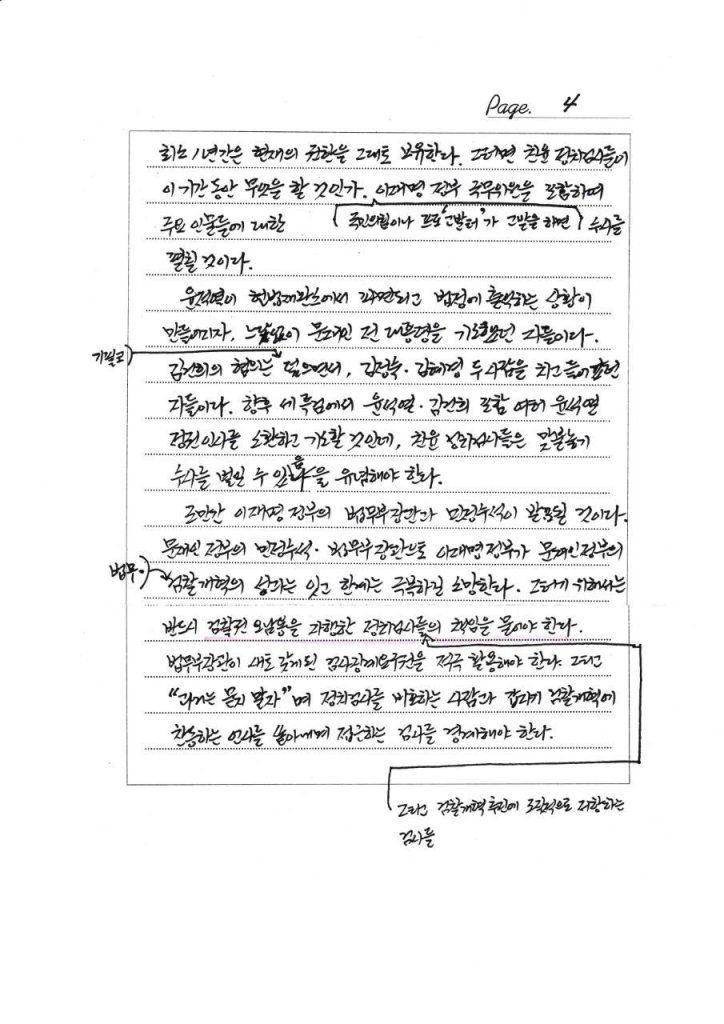 Page. 4
최소 1년간은 현재의 권한을 그대로 보유한다. 그러면 친윤 정치검사들이
이 기간 동안 무엇을 할 것인가. 이재명 정부 국무위원을 포함하여
주요 인물들에 대한 국민의힘이나 프로"고발러"가 고발을 하면 수사를
펼칠 것이다.
윤석열이 헌법재판소에서 파면되고 법정에 출석하는 상황이
만들어지자, 느닷없이 문재인 전 대통령을 기소했던 자들이다.
기필코
김건희의 혐의는 덮으면서, 김정숙·김혜경 두 사람을 치고 들어갔던
자들이다. 향후 세 특검에서 윤석열·김건희 포함 여러 윤석열
정권 인사를 소환하고 기소할 것인데, 친윤 정치검사들은 맞불놓기
수사를 벌일 수 있음을 유념해야 한다.
조만간 이재명 정부의 법무부장관과 민정수석이 발표될 것이다.
문재인 정부의 민정수석·법무부장관으로 이재명 정부가 문재인 정부의
법무·
검찰개혁의 성과는 잇고 한계는 극복하길 소망한다. 그러기 위해서는
반드시 검찰권 오남용을 자행한 정치검사들의 책임을 물어야 한다.
법무부장관이 새로 갖게 된 검사징계요구권을 적극 활용해야 한다. 그리고
"과거는 묻지 말자"며 정치검사를 비호하는 사람과 갑자기 검찰개혁에
찬동하는 언사를 쏟아내며 접근하는 검사를 경계해야 한다.
그리고 검찰개혁 추진에 조직적으로 저항하는
검사들